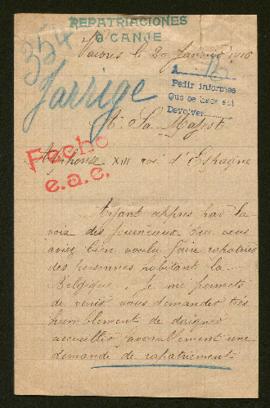 REPATRIACIONES
O CANJE
354
Vaivres le 20 Janvier 1916
A
Pedir informes
Que se haga est
Devolver
Jarrige
A Sa Majesté
Fecho
e.a.c.
Alphonse XIII roi d'Espagne
Ayant appris par la
voix des journeaux que vous
aviez bien voulu faire rapatrier
des personnes habitant la
Belgique, je me permets
de venir vous demander très
humblement de daigner
accueillir favorablement une
demande de rapatriement